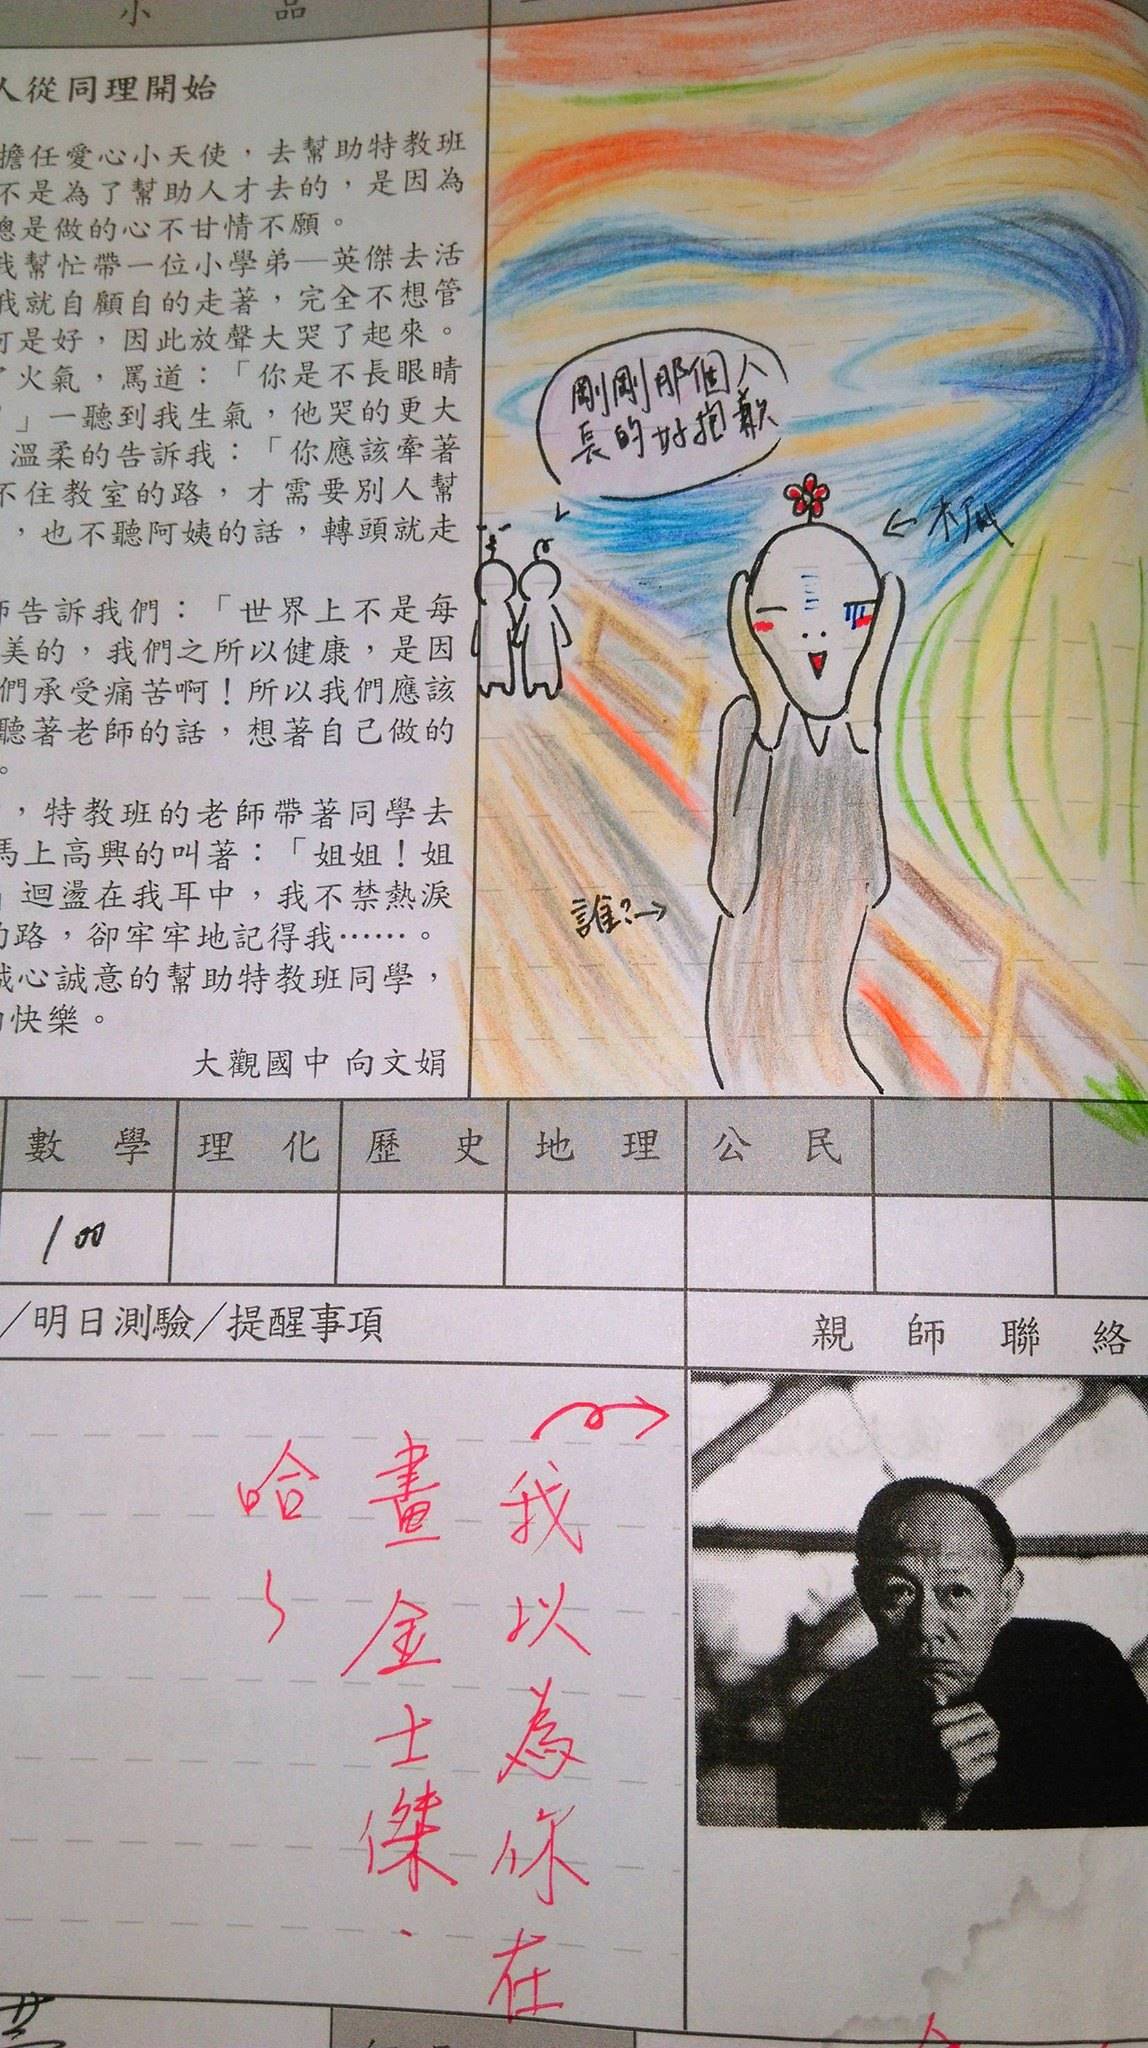 小品
人從同理開始
擔任愛心小天使，去幫助特教班
不是為了幫助人才去的，是因為
總是做的心不甘情不願。
我幫忙帶一位小學弟—英傑去活
我就自顧自的走著，完全不想管
可是好，因此放聲大哭了起來。
了火氣，罵道：「你是不長眼睛
」一聽到我生氣，他哭的更大
溫柔的告訴我：「你應該牽著
不住教室的路，才需要別人幫
，也不聽阿姨的話，轉頭就走
師告訴我們：「世界上不是每
美的，我們之所以健康，是因
們承受痛苦啊！所以我們應該
聽著老師的話，想著自己做的
。
，特教班的老師帶著同學去
馬上高興的叫著：「姐姐！姐
」迴盪在我耳中，我不禁熱淚
的路，卻牢牢地記得我……。
誠心誠意的幫助特教班同學，
的快樂。
大觀國中 向文娟
剛剛那個人
長的好抱歉
←木瓜
誰?→
數學 理化 歷史 地理 公民
100
/明日測驗/提醒事項
親師聯絡
我以為你在
畫金士傑.
哈~